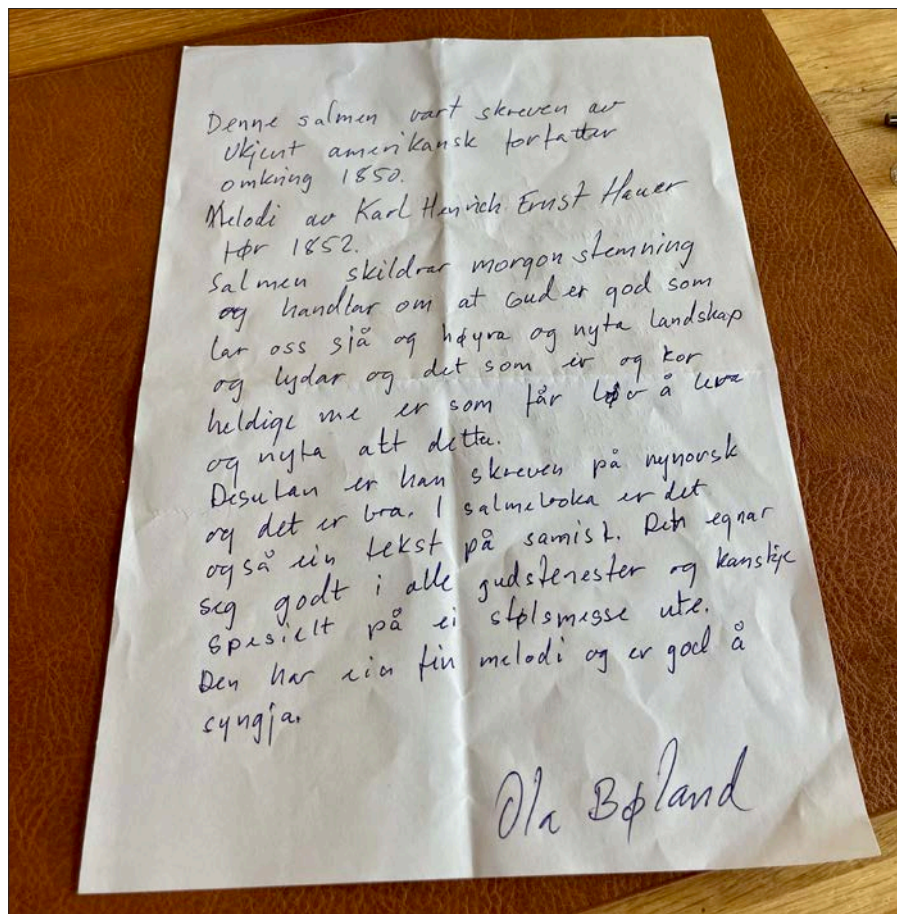 Denne salmen vart skreven av
Ukjent amerikansk forfatter
omkring 1850.
Melodi av Karl Henrich Ernst Hauer
før 1852.
Salmen skildrar morgonstemning
og handlar om at Gud er god som
lar oss sjå og høyra og nyta landskap
og lydar og det som er og kor
heldige me er som får løv å leva
og nyta att dette.
Desutan er han skreven på nynorsk
og det er bra. I salmeboka er det
også ein tekst på samisk. Den egnar
seg godt i alle gudstenester og kanskje
spesielt på ei stølsmesse ute.
Den har ein fin melodi og er god å
syngja.
Ola Bøland